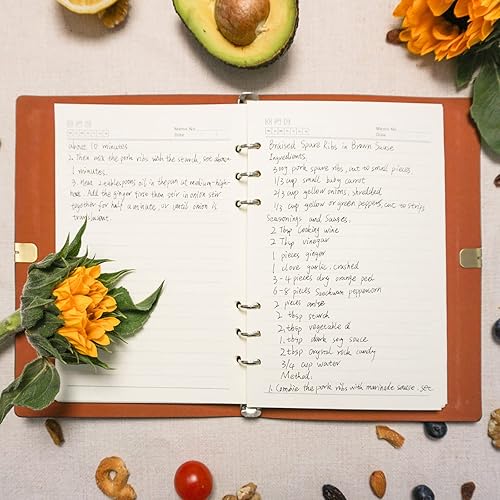 Memo No.
Date
about 10 minutes
2. Then mix the pork ribs with the starch, set above
1 minutes.
3. Heat 2 tablespoons oil in the pan at medium-high
heat. Add the ginger toss then stir in onion stir
together for half a minute, or until onion is
translucent.
Memo No.
Date
Braised Spare Ribs in Brown Sauce
Ingredients:
300g pork spare ribs, cut to small pieces
1/3 cup small baby carrot
2/3 cup yellow onions, shredded
1/3 cup yellow or green peppers, cut to strips
Seasonings and Sauces:
2 Tbsp Cooking wine
2 Tbsp vinegar
1 pieces ginger
1 clove garlic, crashed
3-4 pieces dry orange peel
6-8 pieces Szechuan peppercorn
2 pieces anise
2 tbsp starch
2 tbsp vegetable
1 tbsp dark soy sauce
2 tbsp crystal rock candy
3/4 cup water
Method:
1. Combine the pork ribs with marinade sauce. set